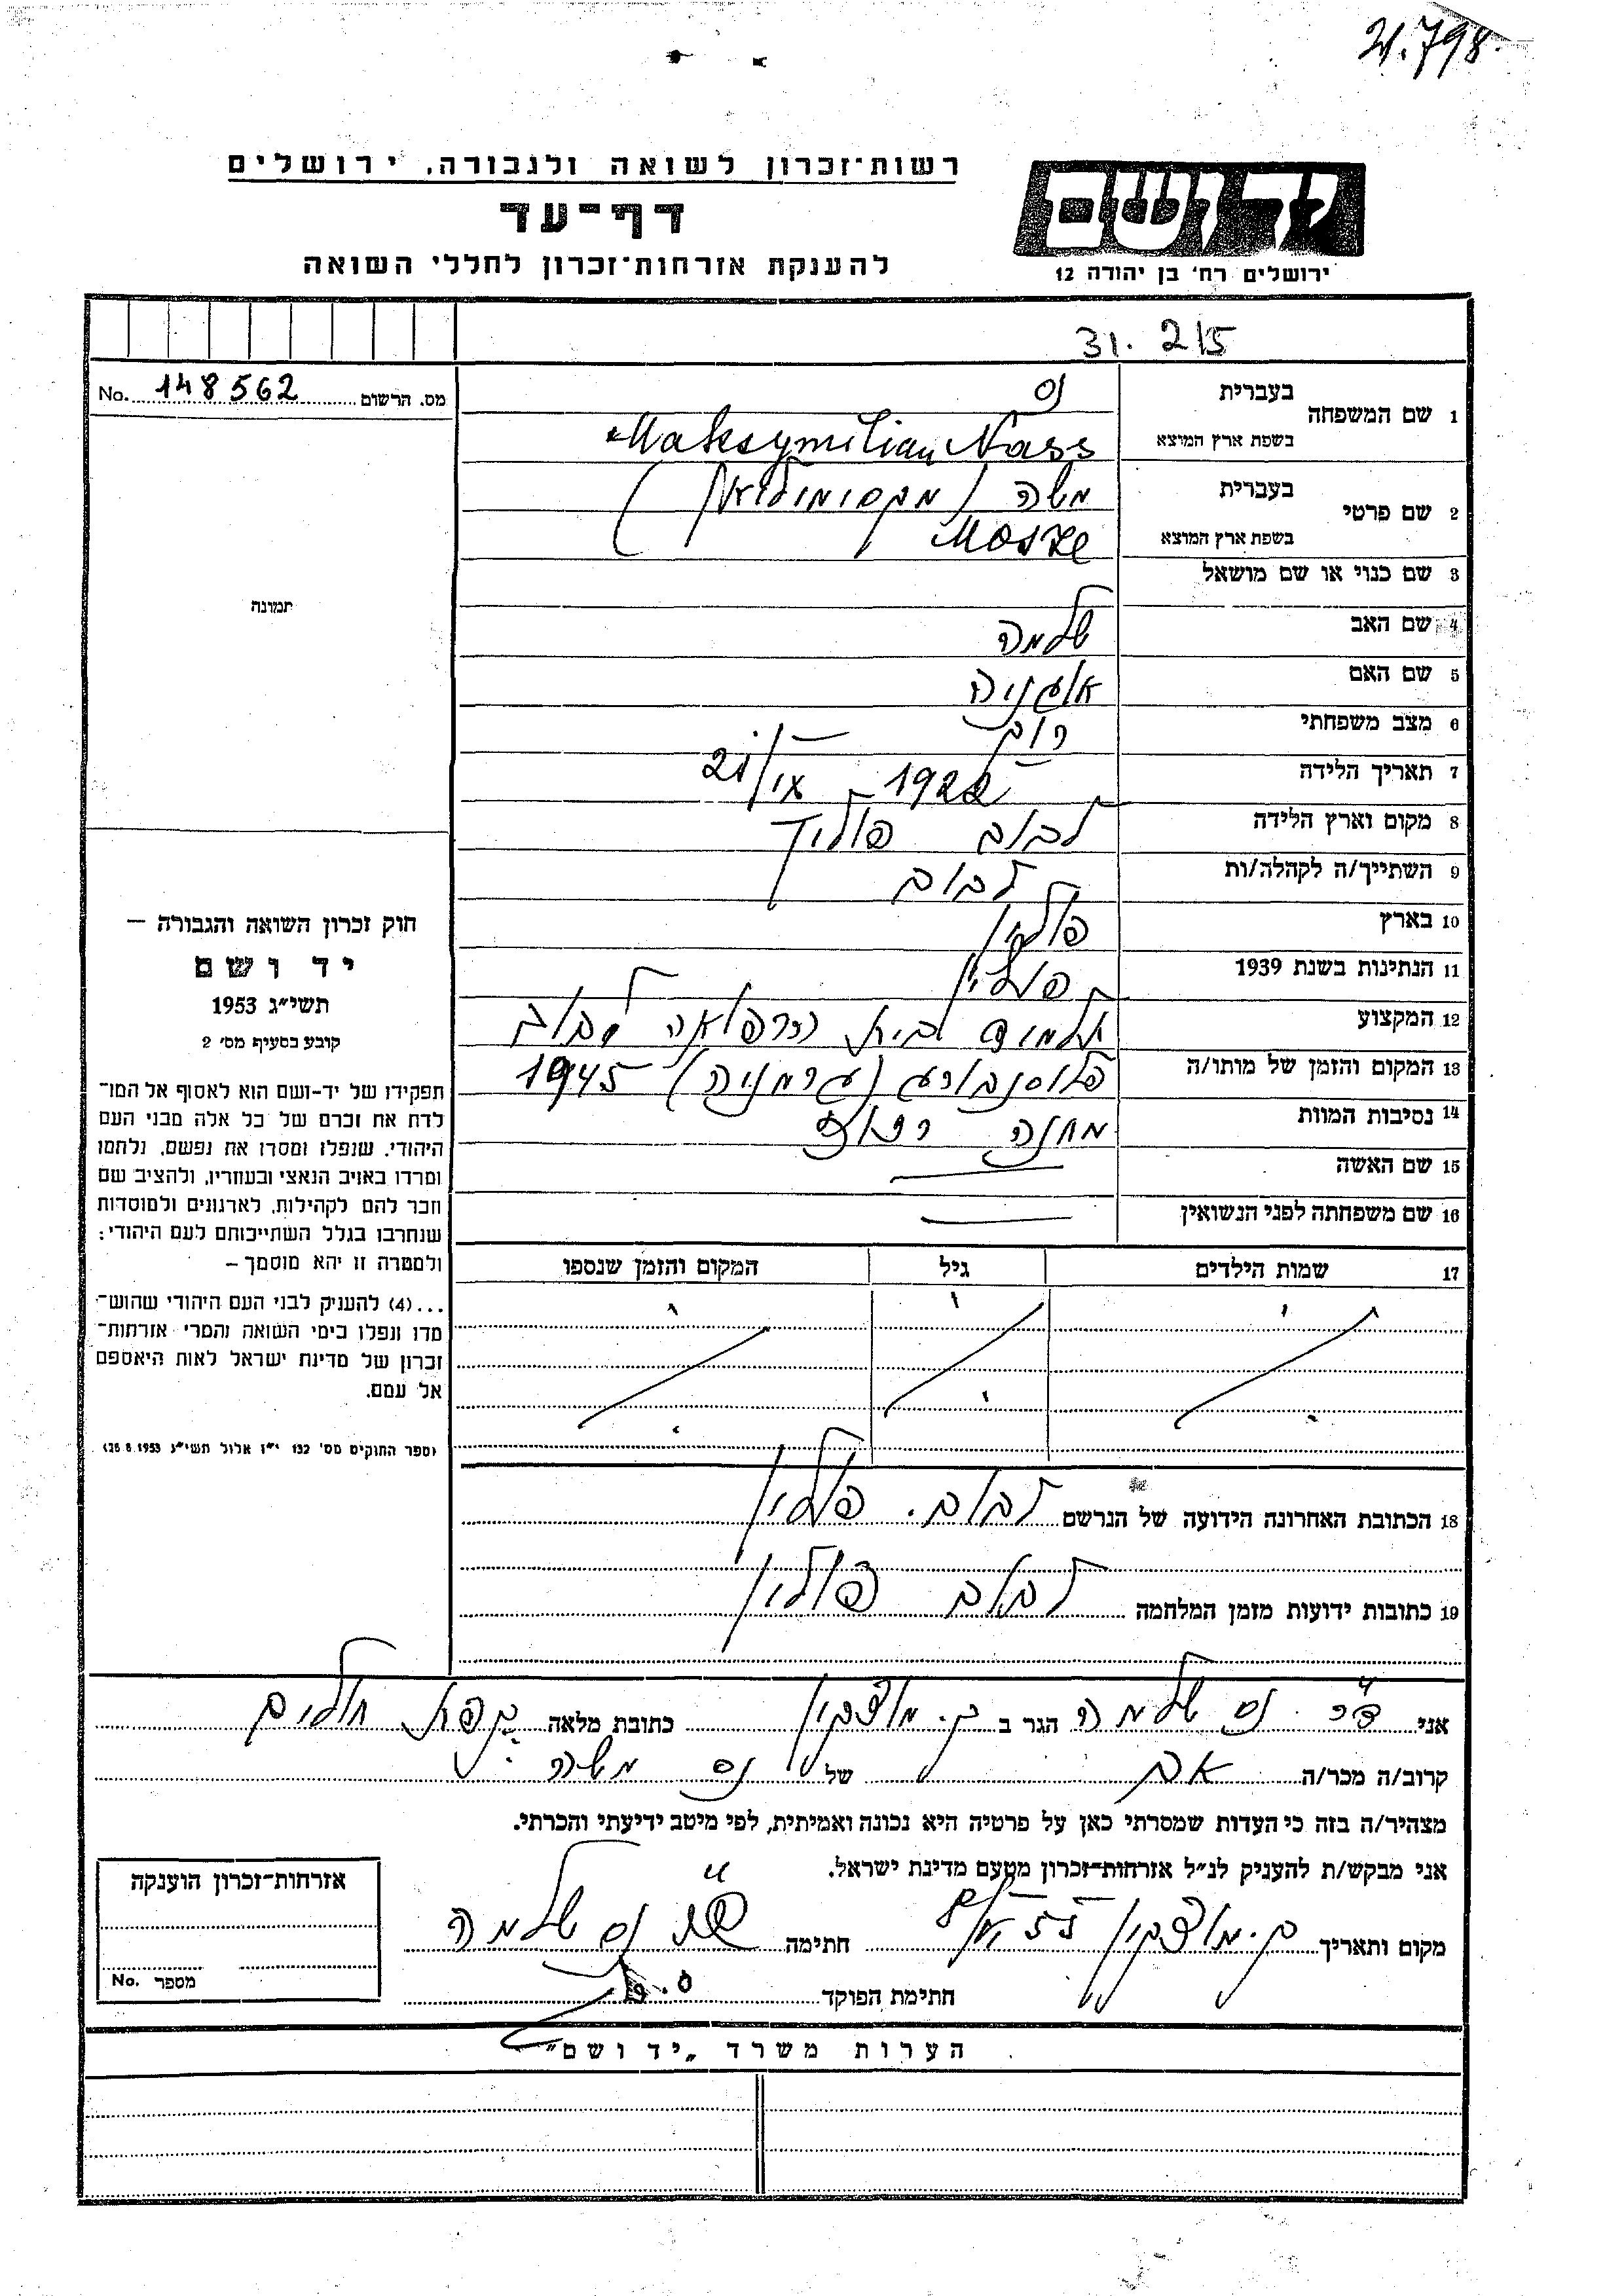 21.798.
רשות־זכרון לשואה ולגבורה, ירושלים
יד ושם
דף־עד
להענקת אזרחות־זכרון לחללי השואה
ירושלים רח' בן יהודה 12
31. 215
מס. הרשום 148562 No.
1 שם המשפחה
בעברית נס
בשפת ארץ המוצא Maksymilian Nass
2 שם פרטי
בעברית משה (מקסימיליאן)
בשפת ארץ המוצא Mosze
3 שם כנוי או שם מושאל
תמונה
4 שם האב שלמה
5 שם האם
6 מצב משפחתי רוק
7 תאריך הלידה 1922
8 מקום וארץ הלידה לבוב פולין
9 השתייך/ה לקהלה/ות לבוב
10 בארץ פולין
11 הנתינות בשנת 1939 פולין
12 המקצוע תלמיד לבית לרפואה לבוב
13 המקום והזמן של מותו/ה פלוסנבורג (גרמניה) 1945
14 נסיבות המוות מחנה
15 שם האשה —
16 שם משפחתה לפני הנשואין —
חוק זכרון השואה והגבורה —
יד ושם
תשי״ג 1953
קובע בסעיף מס' 2
תפקידו של יד־ושם הוא לאסוף אל המו־
לדת את זכרם של כל אלה מבני העם
היהודי, שנפלו ומסרו את נפשם, נלחמו
ומרדו באויב הנאצי ובעוזריו, ולהציב שם
וזכר להם לקהילות, לארגונים ולמוסדות
שנחרבו בגלל השתייכותם לעם היהודי;
ולמטרה זו יהא מוסמך —
...(4) להעניק לבני העם היהודי שהוש־
מדו ונפלו בימי השואה והמרי אזרחות־
זכרון של מדינת ישראל לאות היאספם
אל עמם.
(ספר החוקים מס' 132 י״ז אלול תשי״ג 28.8.1953)
17 שמות הילדים גיל המקום והזמן שנספו
18 הכתובת האחרונה הידועה של הנרשם לבוב. פולין
19 כתובות ידועות מזמן המלחמה לבוב פולין
אני ד״ר נס שלמה הגר ב ק. מוצקין כתובת מלאה קפת חולים
קרוב/ה מכר/ה אב של נס משה
מצהיר/ה בזה כי העדות שמסרתי כאן על פרטיה היא נכונה ואמיתית, לפי מיטב ידיעתי והכרתי.
אני מבקש/ת להעניק לנ״ל אזרחות־זכרון מטעם מדינת ישראל.
מקום ותאריך ק. מוצקין חתימה ד״ר נס שלמה
חתימת הפוקד
אזרחות־זכרון הוענקה
מספר No.
הערות משרד „יד ושם"